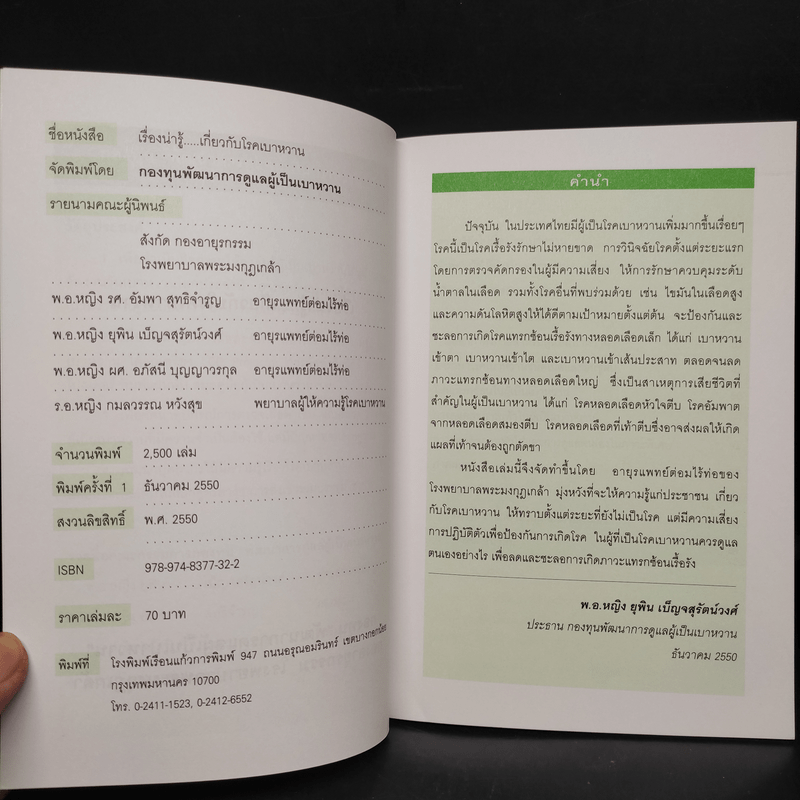 ชื่อหนังสือ เรื่องน่ารู้.....เกี่ยวกับโรคเบาหวาน
จัดพิมพ์โดย กองทุนพัฒนาการดูแลผู้เป็นเบาหวาน
รายนามคณะผู้นิพนธ์
สังกัด กองอายุรกรรม
โรงพยาบาลพระมงกุฎเกล้า
พ.อ.หญิง รศ. อัมพา สุทธิจำรูญ อายุรแพทย์ต่อมไร้ท่อ
พ.อ.หญิง ยุพิน เบ็ญจสุรัตน์วงศ์ อายุรแพทย์ต่อมไร้ท่อ
พ.อ.หญิง ผศ. อภัสนี บุญญาวรกุล อายุรแพทย์ต่อมไร้ท่อ
ร.อ.หญิง กมลวรรณ หวังสุข พยาบาลผู้ให้ความรู้โรคเบาหวาน
จำนวนพิมพ์ 2,500 เล่ม
พิมพ์ครั้งที่ 1 ธันวาคม 2550
สงวนลิขสิทธิ์ พ.ศ. 2550
ISBN 978-974-8377-32-2
ราคาเล่มละ 70 บาท
พิมพ์ที่ โรงพิมพ์เรือนแก้วการพิมพ์ 947 ถนนอรุณอมรินทร์ เขตบางกอกน้อย
กรุงเทพมหานคร 10700
โทร. 0-2411-1523, 0-2412-6552
คำนำ
ปัจจุบัน ในประเทศไทยมีผู้เป็นโรคเบาหวานเพิ่มมากขึ้นเรื่อยๆ
โรคนี้เป็นโรคเรื้อรังรักษาไม่หายขาด การวินิจฉัยโรคตั้งแต่ระยะแรก
โดยการตรวจคัดกรองในผู้มีความเสี่ยง ให้การรักษาควบคุมระดับ
น้ำตาลในเลือด รวมทั้งโรคอื่นที่พบร่วมด้วย เช่น ไขมันในเลือดสูง
และความดันโลหิตสูงให้ได้ดีตามเป้าหมายตั้งแต่ต้น จะป้องกันและ
ชะลอการเกิดโรคแทรกซ้อนเรื้อรังทางหลอดเลือดเล็ก ได้แก่ เบาหวาน
เข้าตา เบาหวานเข้าไต และเบาหวานเข้าเส้นประสาท ตลอดจนลด
ภาวะแทรกซ้อนทางหลอดเลือดใหญ่ ซึ่งเป็นสาเหตุการเสียชีวิตที่
สำคัญในผู้เป็นเบาหวาน ได้แก่ โรคหลอดเลือดหัวใจตีบ โรคอัมพาต
จากหลอดเลือดสมองตีบ โรคหลอดเลือดที่เท้าตีบซึ่งอาจส่งผลให้เกิด
แผลที่เท้าจนต้องถูกตัดขา
หนังสือเล่มนี้จึงจัดทำขึ้นโดย อายุรแพทย์ต่อมไร้ท่อของ
โรงพยาบาลพระมงกุฎเกล้า มุ่งหวังที่จะให้ความรู้แก่ประชาชน เกี่ยว
กับโรคเบาหวาน ให้ทราบตั้งแต่ระยะที่ยังไม่เป็นโรค แต่มีความเสี่ยง
การปฏิบัติตัวเพื่อป้องกันการเกิดโรค ในผู้ที่เป็นโรคเบาหวานควรดูแล
ตนเองอย่างไร เพื่อลดและชะลอการเกิดภาวะแทรกซ้อนเรื้อรัง
พ.อ.หญิง ยุพิน เบ็ญจสุรัตน์วงศ์
ประธาน กองทุนพัฒนาการดูแลผู้เป็นเบาหวาน
ธันวาคม 2550